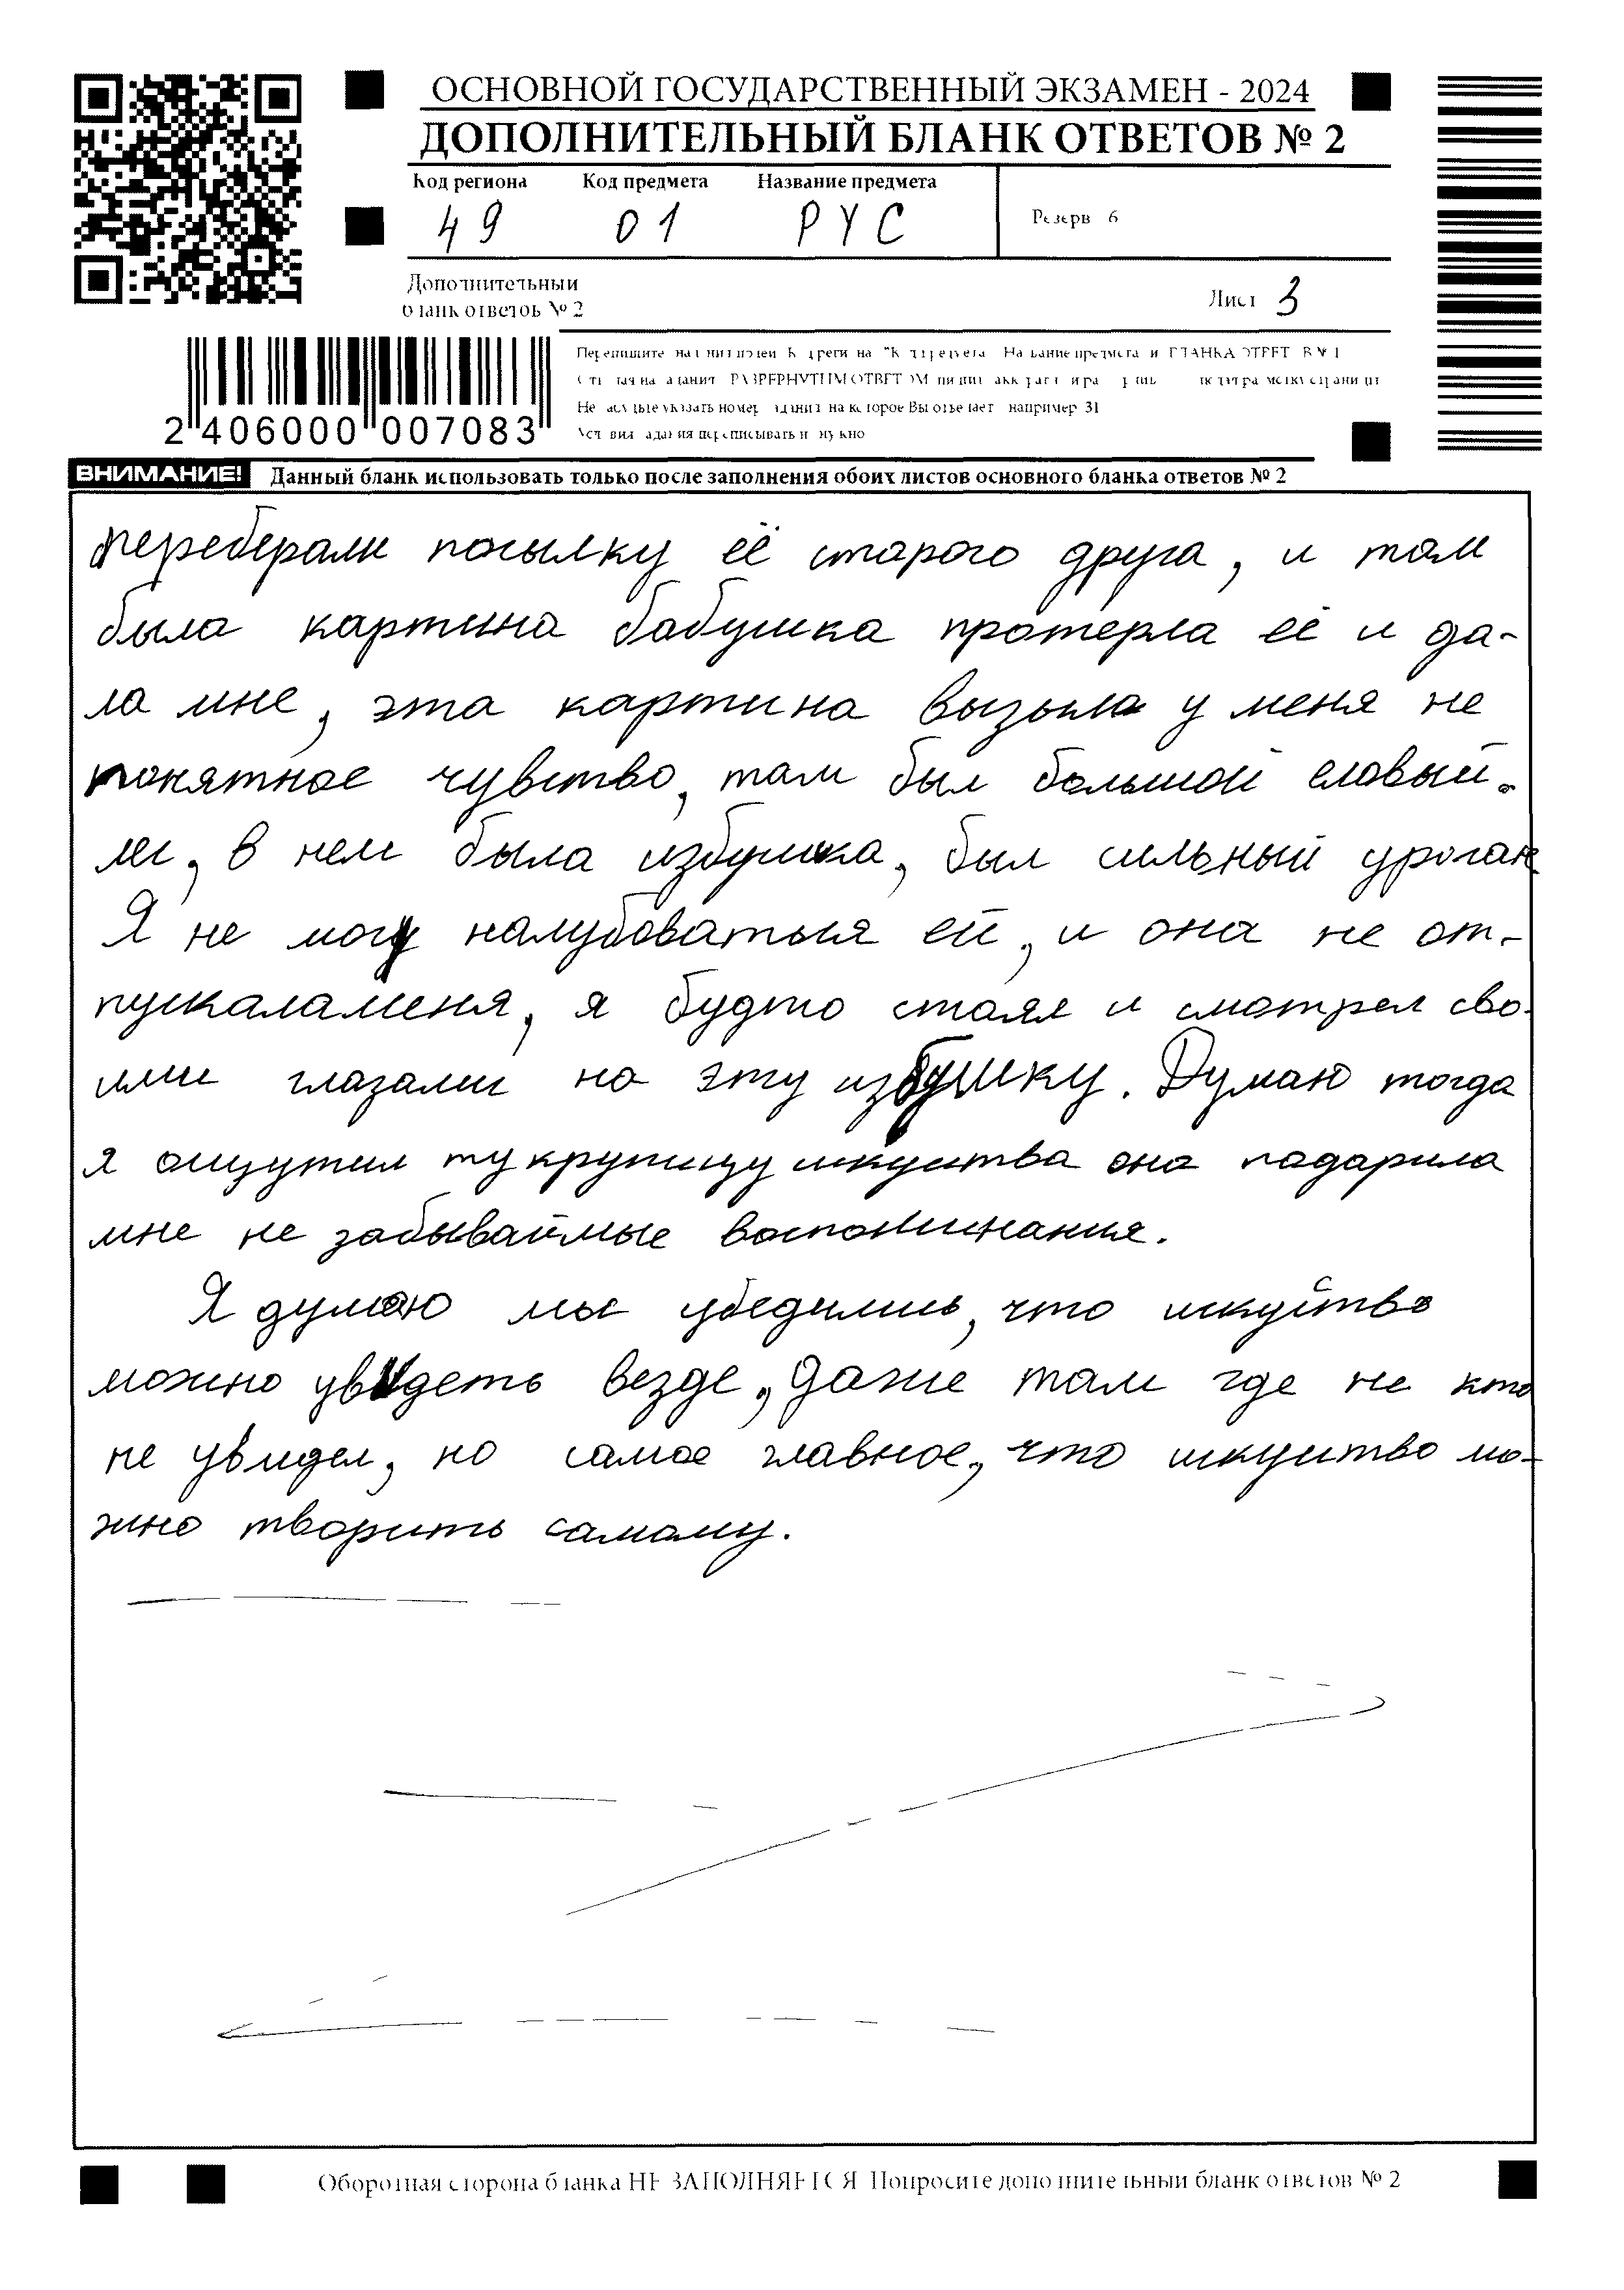 ОСНОВНОЙ ГОСУДАРСТВЕННЫЙ ЭКЗАМЕН - 2024
ДОПОЛНИТЕЛЬНЫЙ БЛАНК ОТВЕТОВ № 2
Код региона Код предмета Название предмета
49 01 РУС
Резерв 6
Дополнительный
бланк ответов № 2
Лист 3
Перепишите
Не указать номер на которое Вы отвечаете например 31
переписывать не нужно
2 406000 007083
ВНИМАНИЕ! Данный бланк использовать только после заполнения обоих листов основного бланка ответов № 2
переберали посылку её старого друга, и там
была картина бабушка протерла её и да-
ла мне, эта картина вызыла у меня не
понятное чувство, там был большой еловый
лес, в нем была избушка, был сильный ураган
Я не могу налубоваться ей, и она не от-
пускаламеня, я будто стоял и смотрел сво-
ими глазами на эту избушку. Думаю тогда
я ощутил ту крупицу искуства она падарила
мне не забываймые воспоминания.
Я думаю мы убедились, что искуство
можно увидеть везде, даже там где не кто
не увидел, но самое главное, что искуство мо-
жно творить самому.
Оборотная сторона бланка НЕ ЗАПОЛНЯЕТСЯ Попросите дополнительный бланк ответов № 2